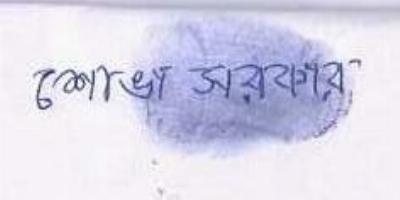 শোভা সরকার